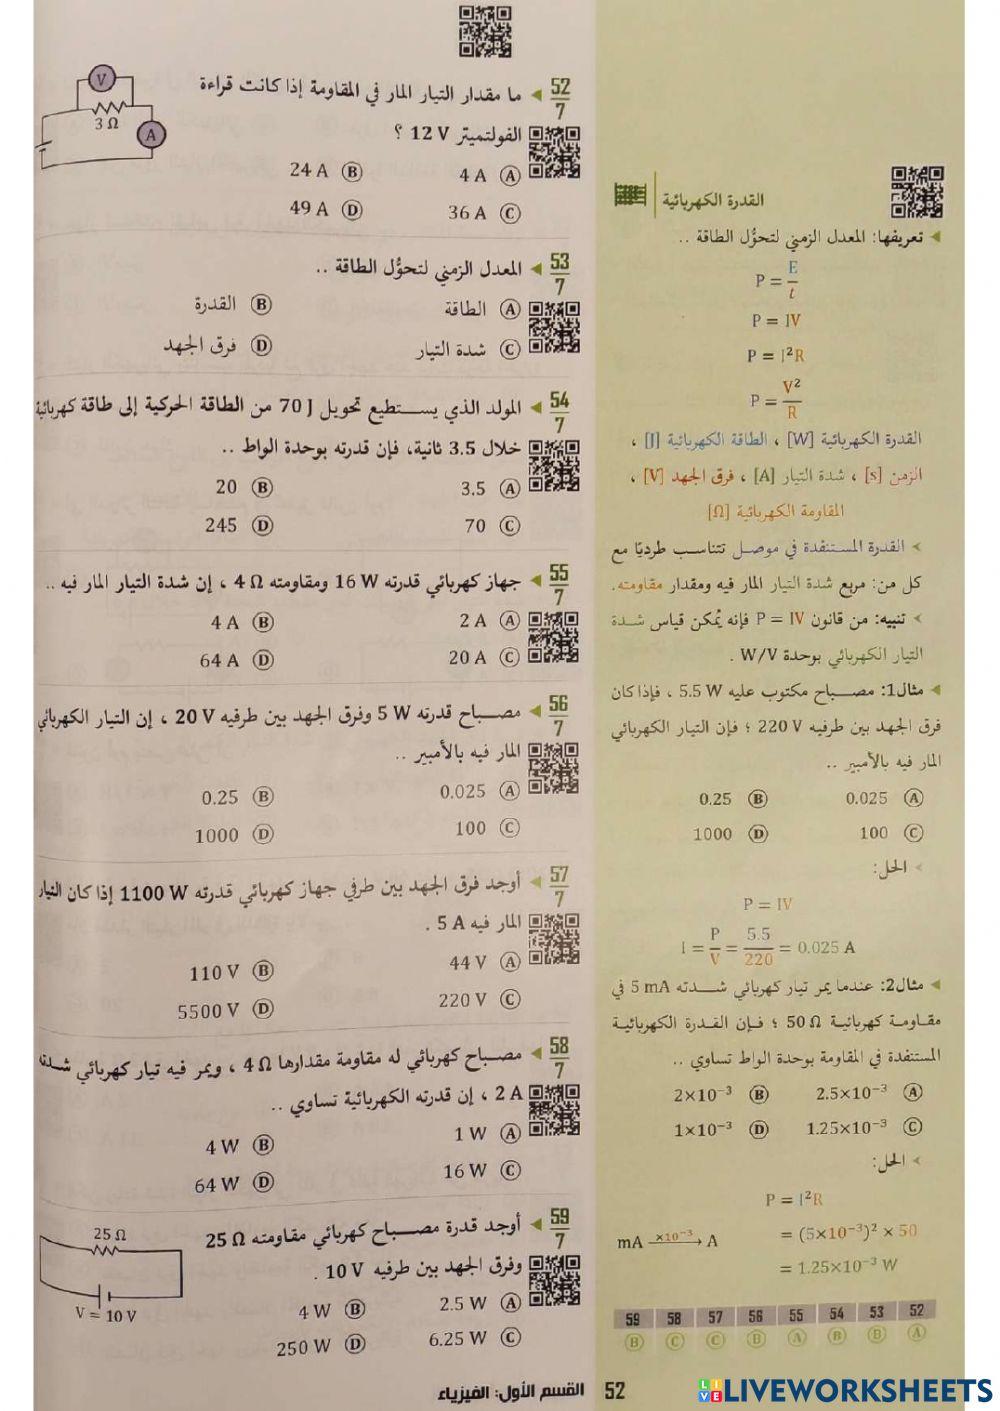 القدرة الكهربائية
تعريفها: المعدل الزمني لتحوُّل الطاقة ..
P = E/t
P = IV
P = I²R
P = V²/R
القدرة الكهربائية [W] ، الطاقة الكهربائية [J] ،
الزمن [s] ، شدة التيار [A] ، فرق الجهد [V] ،
المقاومة الكهربائية [Ω]
القدرة المستنفدة في موصل تتناسب طرديًا مع
كل من: مربع شدة التيار المار فيه ومقدار مقاومته.
تنبيه: من قانون P = IV فإنه يُمكن قياس شدة
التيار الكهربائي بوحدة W/V .
مثال1: مصباح مكتوب عليه 5.5 W ، فإذا كان
فرق الجهد بين طرفيه 220 V ؛ فإن التيار الكهربائي
المار فيه بالأمبير ..
A 0.025 B 0.25
C 100 D 1000
الحل:
P = IV
I = P/V = 5.5/220 = 0.025 A
مثال2: عندما يمر تيار كهربائي شدته 5 mA في
مقاومة كهربائية 50 Ω ؛ فإن القدرة الكهربائية
المستنفدة في المقاومة بوحدة الواط تساوي ..
A 2.5×10⁻³ B 2×10⁻³
C 1.25×10⁻³ D 1×10⁻³
الحل:
P = I²R
mA ×10⁻³ → A = (5×10⁻³)² × 50
= 1.25×10⁻³ W
52 53 54 55 56 57 58 59
A B B A B C C B
52/7 ما مقدار التيار المار في المقاومة إذا كانت قراءة
الفولتميتر 12 V ؟
A 4 A B 24 A
C 36 A D 49 A
V
3 Ω
A
53/7 المعدل الزمني لتحوُّل الطاقة ..
A الطاقة B القدرة
C شدة التيار D فرق الجهد
54/7 المولد الذي يستطيع تحويل 70 J من الطاقة الحركية إلى طاقة كهربائية
خلال 3.5 ثانية، فإن قدرته بوحدة الواط ..
A 3.5 B 20
C 70 D 245
55/7 جهاز كهربائي قدرته 16 W ومقاومته 4 Ω ، إن شدة التيار المار فيه ..
A 2 A B 4 A
C 20 A D 64 A
56/7 مصباح قدرته 5 W وفرق الجهد بين طرفيه 20 V ، إن التيار الكهربائي
المار فيه بالأمبير ..
A 0.025 B 0.25
C 100 D 1000
57/7 أوجد فرق الجهد بين طرفي جهاز كهربائي قدرته 1100 W إذا كان التيار
المار فيه 5 A .
A 44 V B 110 V
C 220 V D 5500 V
58/7 مصباح كهربائي له مقاومة مقدارها 4 Ω ، ويمر فيه تيار كهربائي شدته
2 A ، إن قدرته الكهربائية تساوي ..
A 1 W B 4 W
C 16 W D 64 W
59/7 أوجد قدرة مصباح كهربائي مقاومته 25 Ω
وفرق الجهد بين طرفيه 10 V .
A 2.5 W B 4 W
C 6.25 W D 250 W
25 Ω
V = 10 V
52 القسم الأول: الفيزياء
LIVEWORKSHEETS